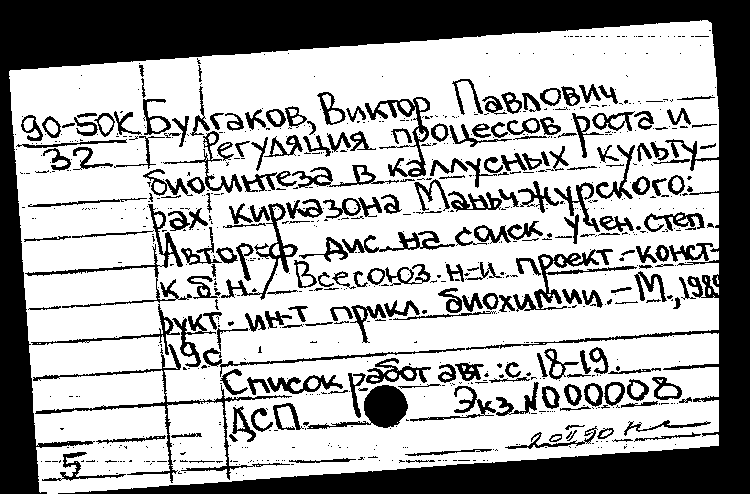 90-50К Булгаков, Виктор Павлович.
32 Регуляция процессов роста и
биосинтеза в каллусных культу-
рах кирказона Маньчжурского:
Автореф. дис. на соиск. учен. степ.
к.б.н. / Всесоюз. н-и. проект.-конст-
рукт. ин-т прикл. биохимии. - М., 1989
19с.
Список работ авт.: с. 18-19.
ДСП. Экз. N000008
20 II 90
5